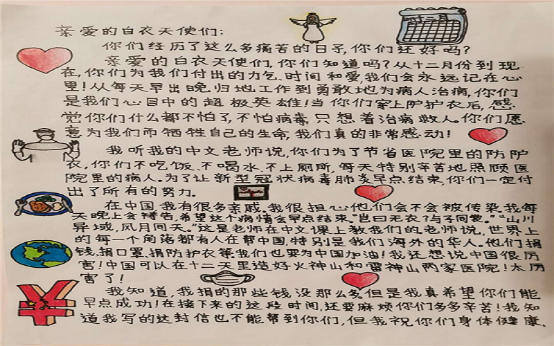 亲爱的白衣天使们:
你们经历了这么多痛苦的日子,你们还好吗?
亲爱的白衣天使们,你们知道吗?从十二月份到现
在,你们为我们付出的力气、时间和爱我们会永远记在心
里!从每天早出晚归地工作到勇敢地为病人治病,你们
是我们心目中的超极英雄!当你们穿上防护衣后,感
觉你们什么都不怕了,不怕病毒,只想着治病救人。你们愿
意为我们而牺牲自己的生命,我们真的非常感动!
我听我的中文老师说,你们为了节省医院里的防护
衣,你们不吃饭、不喝水、不上厕所,每天特别辛苦地照顾医
院里的病人。为了让新型冠状病毒肺炎早点结束,你们一定付
出了所有的努力。
在中国,我有很多亲戚。我很担心他们会不会被传染,我每
天晚上会祷告,希望这个病情会早点结束。"岂曰无衣?与子同裳。""山川
异域,风月同天。"这是老师在中文课上教我们的。老师说,世界上
的每一个角落都有人在帮中国,特别是我们海外的华人。他们捐
钱、捐口罩、捐防护衣等。我们也要为中国加油!我还想说中国很厉
害!中国可以在十二天里造好火神山和雷神山两家医院!太厉
害了!
我知道,我捐的那些钱没那么多,但是我真希望你们能
早点成功!在接下来的这段时间,还要麻烦你们多多辛苦!我知
道我写的这封信也不能帮到你们,但我祝你们身体健康、